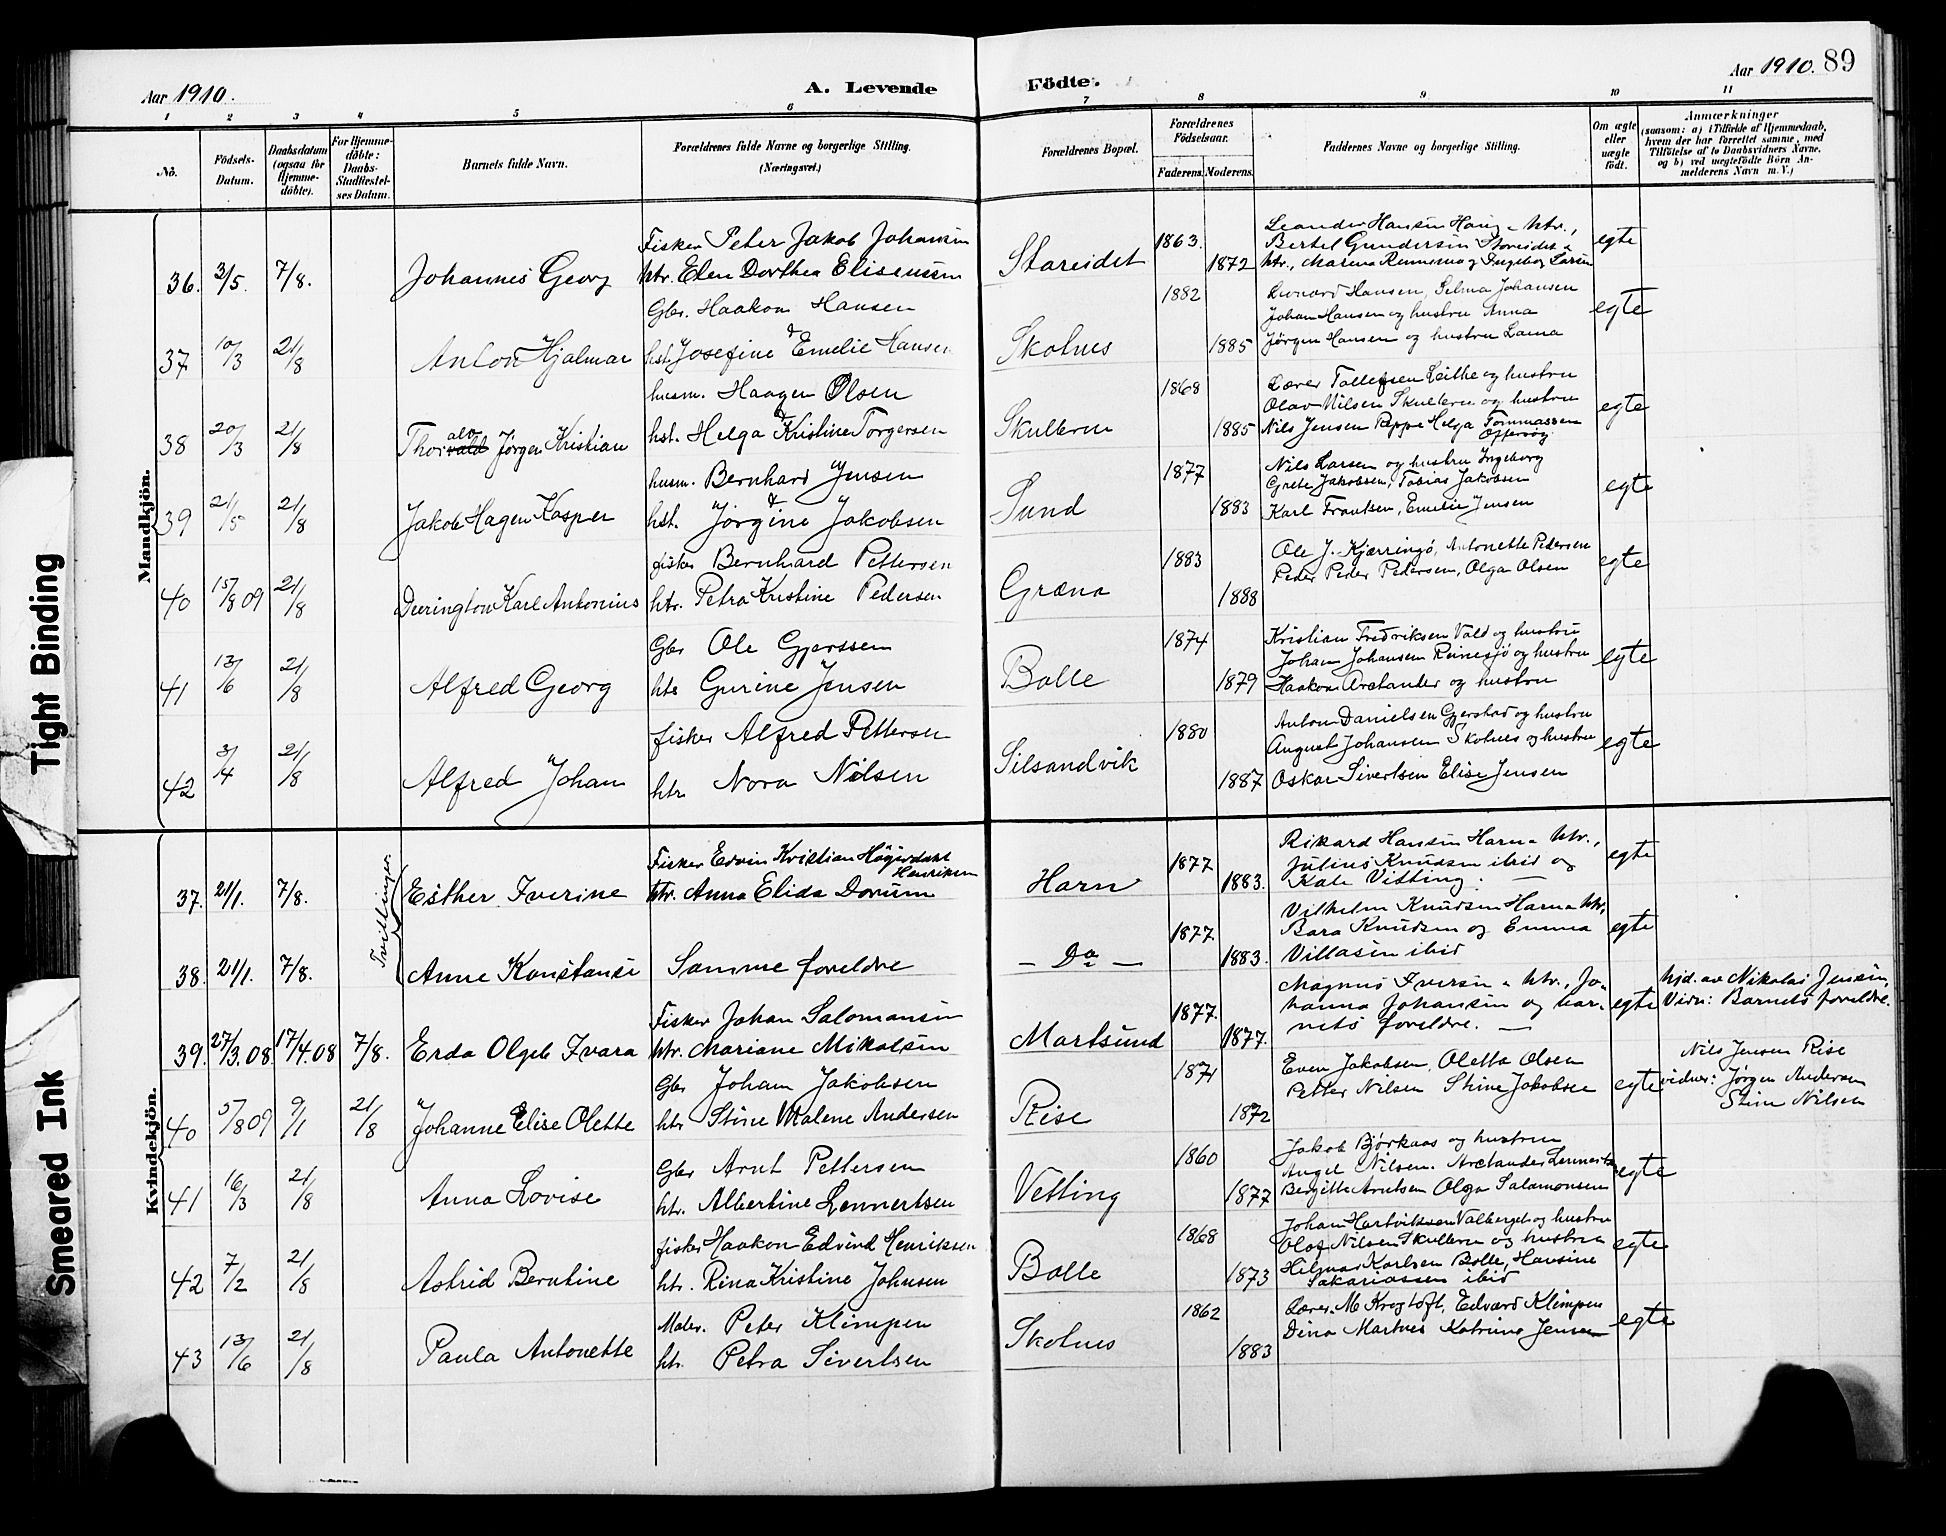 Aar 1910.
A. Levende
Födte.
Aar 1910. 89
1 2 3 4 5 6 7 8 9 10 11
No.
Födsels-Datum.
Daabsdatum (ogsaa for Hjemme-döbte).
For Hjemme-döbte: Daabs-Stadfæstel-ses Datum.
Barnets fulde Navn.
Forældrenes fulde Navne og borgerlige Stilling. (Næringsvei.)
Forældrenes Bopæl.
Forældrenes Födselsaar.
Faderens. Moderens.
Faddernes Navne og borgerlige Stilling.
Om ægte eller uægte födt.
Anmærkninger
(saasom: a) i Tilfælde af Hjemmedaab, hvem der har forrettet samme, med Tilföielse af to Daabsvidners Navne. og b) ved uægtefödte Börn Anmelderens Navn m. V.)
Mandkjön.
36. 3/5. 7/8. Johannes Georg
Fisker Peter Jakob Johansen
htr. Elen Dorthea Elisenusen
Stareidet 1863. 1872
Leander Hansen Haug & htr.,
Bertel Gundersen Storeidet &
htr., Marena Rennemo og Ingeborg Larsen
egte
37 10/3 21/8 Anton Hjalmar
Gbr. Haakon Hansen
& hst. Josefine Emelie Hansen
Skotnes 1882 1885
Leonard Hansen, Selma Johansen
Johan Hansen og hustru Anna
Jörgen Hansen og hustru Laura
egte
38 20/3 21/8 Thorvald alv Jörgen Kristian
husm. Haagen Olsen
& hst. Helga Kristine Torgersen
Skulleren 1868 1885
Lærer Tollefsen Leithe og hustru
Olav Nilsen Skulleren og hustru
Nils Jensen Peppe Helga Tommassen
Offersøy
egte
39 21/5 21/8 Jakob Hagen Kasper
husm. Bernhard Jensen
& hst. Jörgine Jakobsen
Sund 1877 1883
Nils Larsen og hustru Ingeborg
Grete Jakobsen, Tobias Jakobsen
Karl Frantsen, Emelie Jensen
egte
40 15/8 09 21/8 Deerington Karl Antonius
fisker Bernhard Pettersen
htr. Petra Kristine Pedersen
Græna 1883 1888
Ole J. Kjærringö, Antonette Pedersen
Peder Peder Pedersen, Olga Olsen
egte
41 13/6 21/8 Alfred Georg
Gbr Ole Gjerssen
htr Gurine Jensen
Bolle 1874 1879
Kristian Fredriksen Vold og hustru
Johan Johansen Reinesjø og hustru
Haakon Arctander og hustru
egte
42 3/4 21/8 Alfred Johan
fisker Alfred Pettersen
htr Nora Nilsen
Silsandvik 1880 1887
Anton Danielsen Gjerstad og hustru
August Johansen Skotnes og hustru
Oskar Sivertsen Elise Jensen
egte
Kvindekjön.
Tvillinger
37. 21/1. 7/8. Esther Iverine
Fisker Edvin Kristian Högerdahl
Henriksen
htr. Anna Elida Dorum
Harn 1877 1883.
Rikard Hansen Harn & htr.,
Julius Knudsen ibid og
Kate Vitting. —
egte
38. 21/1. 7/8. Anne Konstanse
Samme foreldre
— Do — 1877 1883.
Vilhelm Knudsen Harn & htr,
Bara Knudsen og Emma
Villasen ibid
egte
39. 27/3.08. 17/4.08 7/8. Erda Olgeb Ivara
Fisker Johan Salomonsen
htr. Mariane Mikalsen
Mortsund 1877. 1877.
Magnus Iversen & htr., Jo-
hanna Johansen og bar-
nets foreldre. —
egte
hjd. av Nikolai Jensen,
Vidn: Barnets foreldre.
40 5/8 09 9/1 21/8 Johanne Elise Olette
Gbr Johan Jakobsen
htr Stine Malene Andersen
Rise 1871 1872
Even Jakobsen, Oletta Olsen
Petter Nilsen Stine Jakobsen
egte
Nils Jensen Rise
vidner: Jørgen Andersen
Stine Nilsen
41 16/3 21/8 Anna Lovise
Gbr Arnt Pettersen
htr. Albertine Lennertsen
Vetting 1860 1877
Jakob Bjørkaas og hustru
Angel Nilsen. Arctander Lennerts
Bergitte Arntsen Olga Salamonsen
egte
42 7/2 21/8 Astrid Berntine
fisker Haakon Edvind Henriksen
htr. Rina Kristine Johnsen
Bolle 1868 1873
Johan Hartviksen Valberget og hustru
Olof Nilsen Skulleren og hustru
Hilmar Karlsen Bolle, Hansine
Sakariassen ibid
egte
43 13/6 21/8 Paula Antonette
Maler. Peter Klimpen
htr. Petra Sivertsen
Skotnes 1862 1883
Lærer. M Krogtoft, Edvard Klimpen
Dina Martnes Katrine Jensen
egte
Tight Binding
Smeared Ink